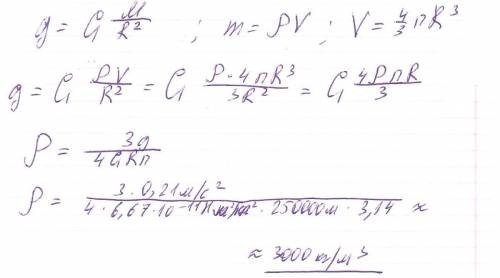 g = G M/R² ; m = ρV ; V = 4/3 πR³
g = G ρV/R² = G ρ·4πR³/3R² = G 4ρπR/3
ρ = 3g/4GRπ
ρ = 3·0,21м/с² / 4·6,67·10⁻¹¹ Н м²/кг² · 250000м · 3,14 ≈
≈ 3000 кг/м³